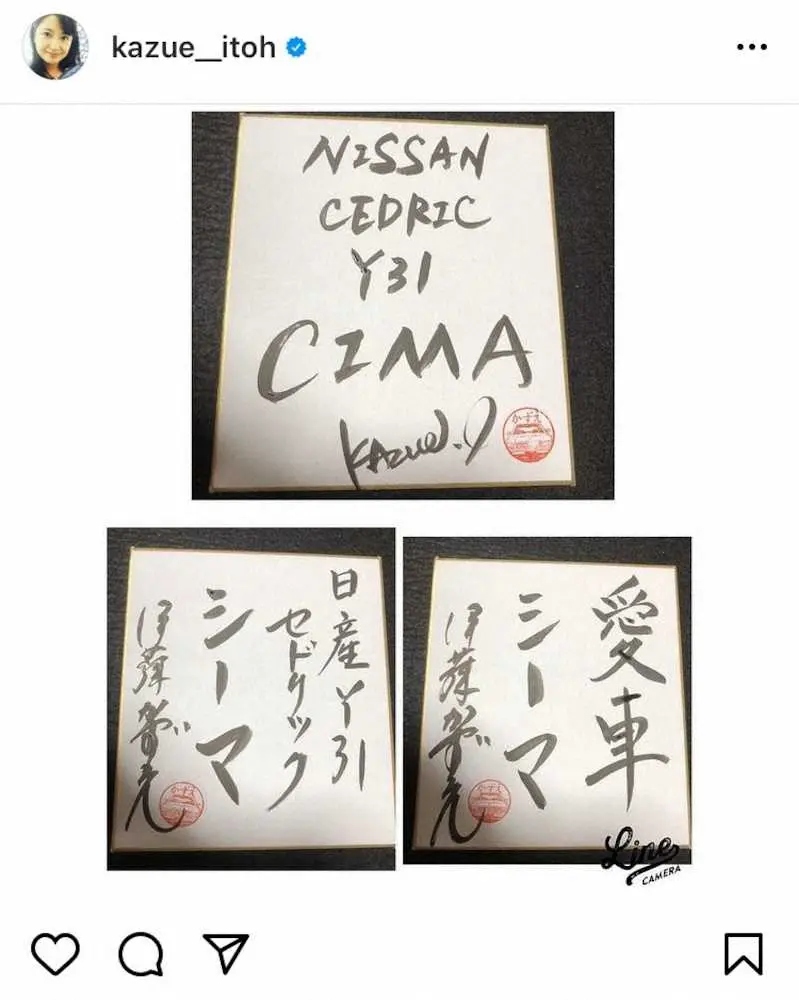 kazue__itoh
NISSAN
CEDRIC
Y31
CIMA
Kazue.I
かずえ
日産Y31
セドリック
シーマ
伊藤かずえ
かずえ
愛車
シーマ
伊藤かずえ
かずえ
Line
CAMERA